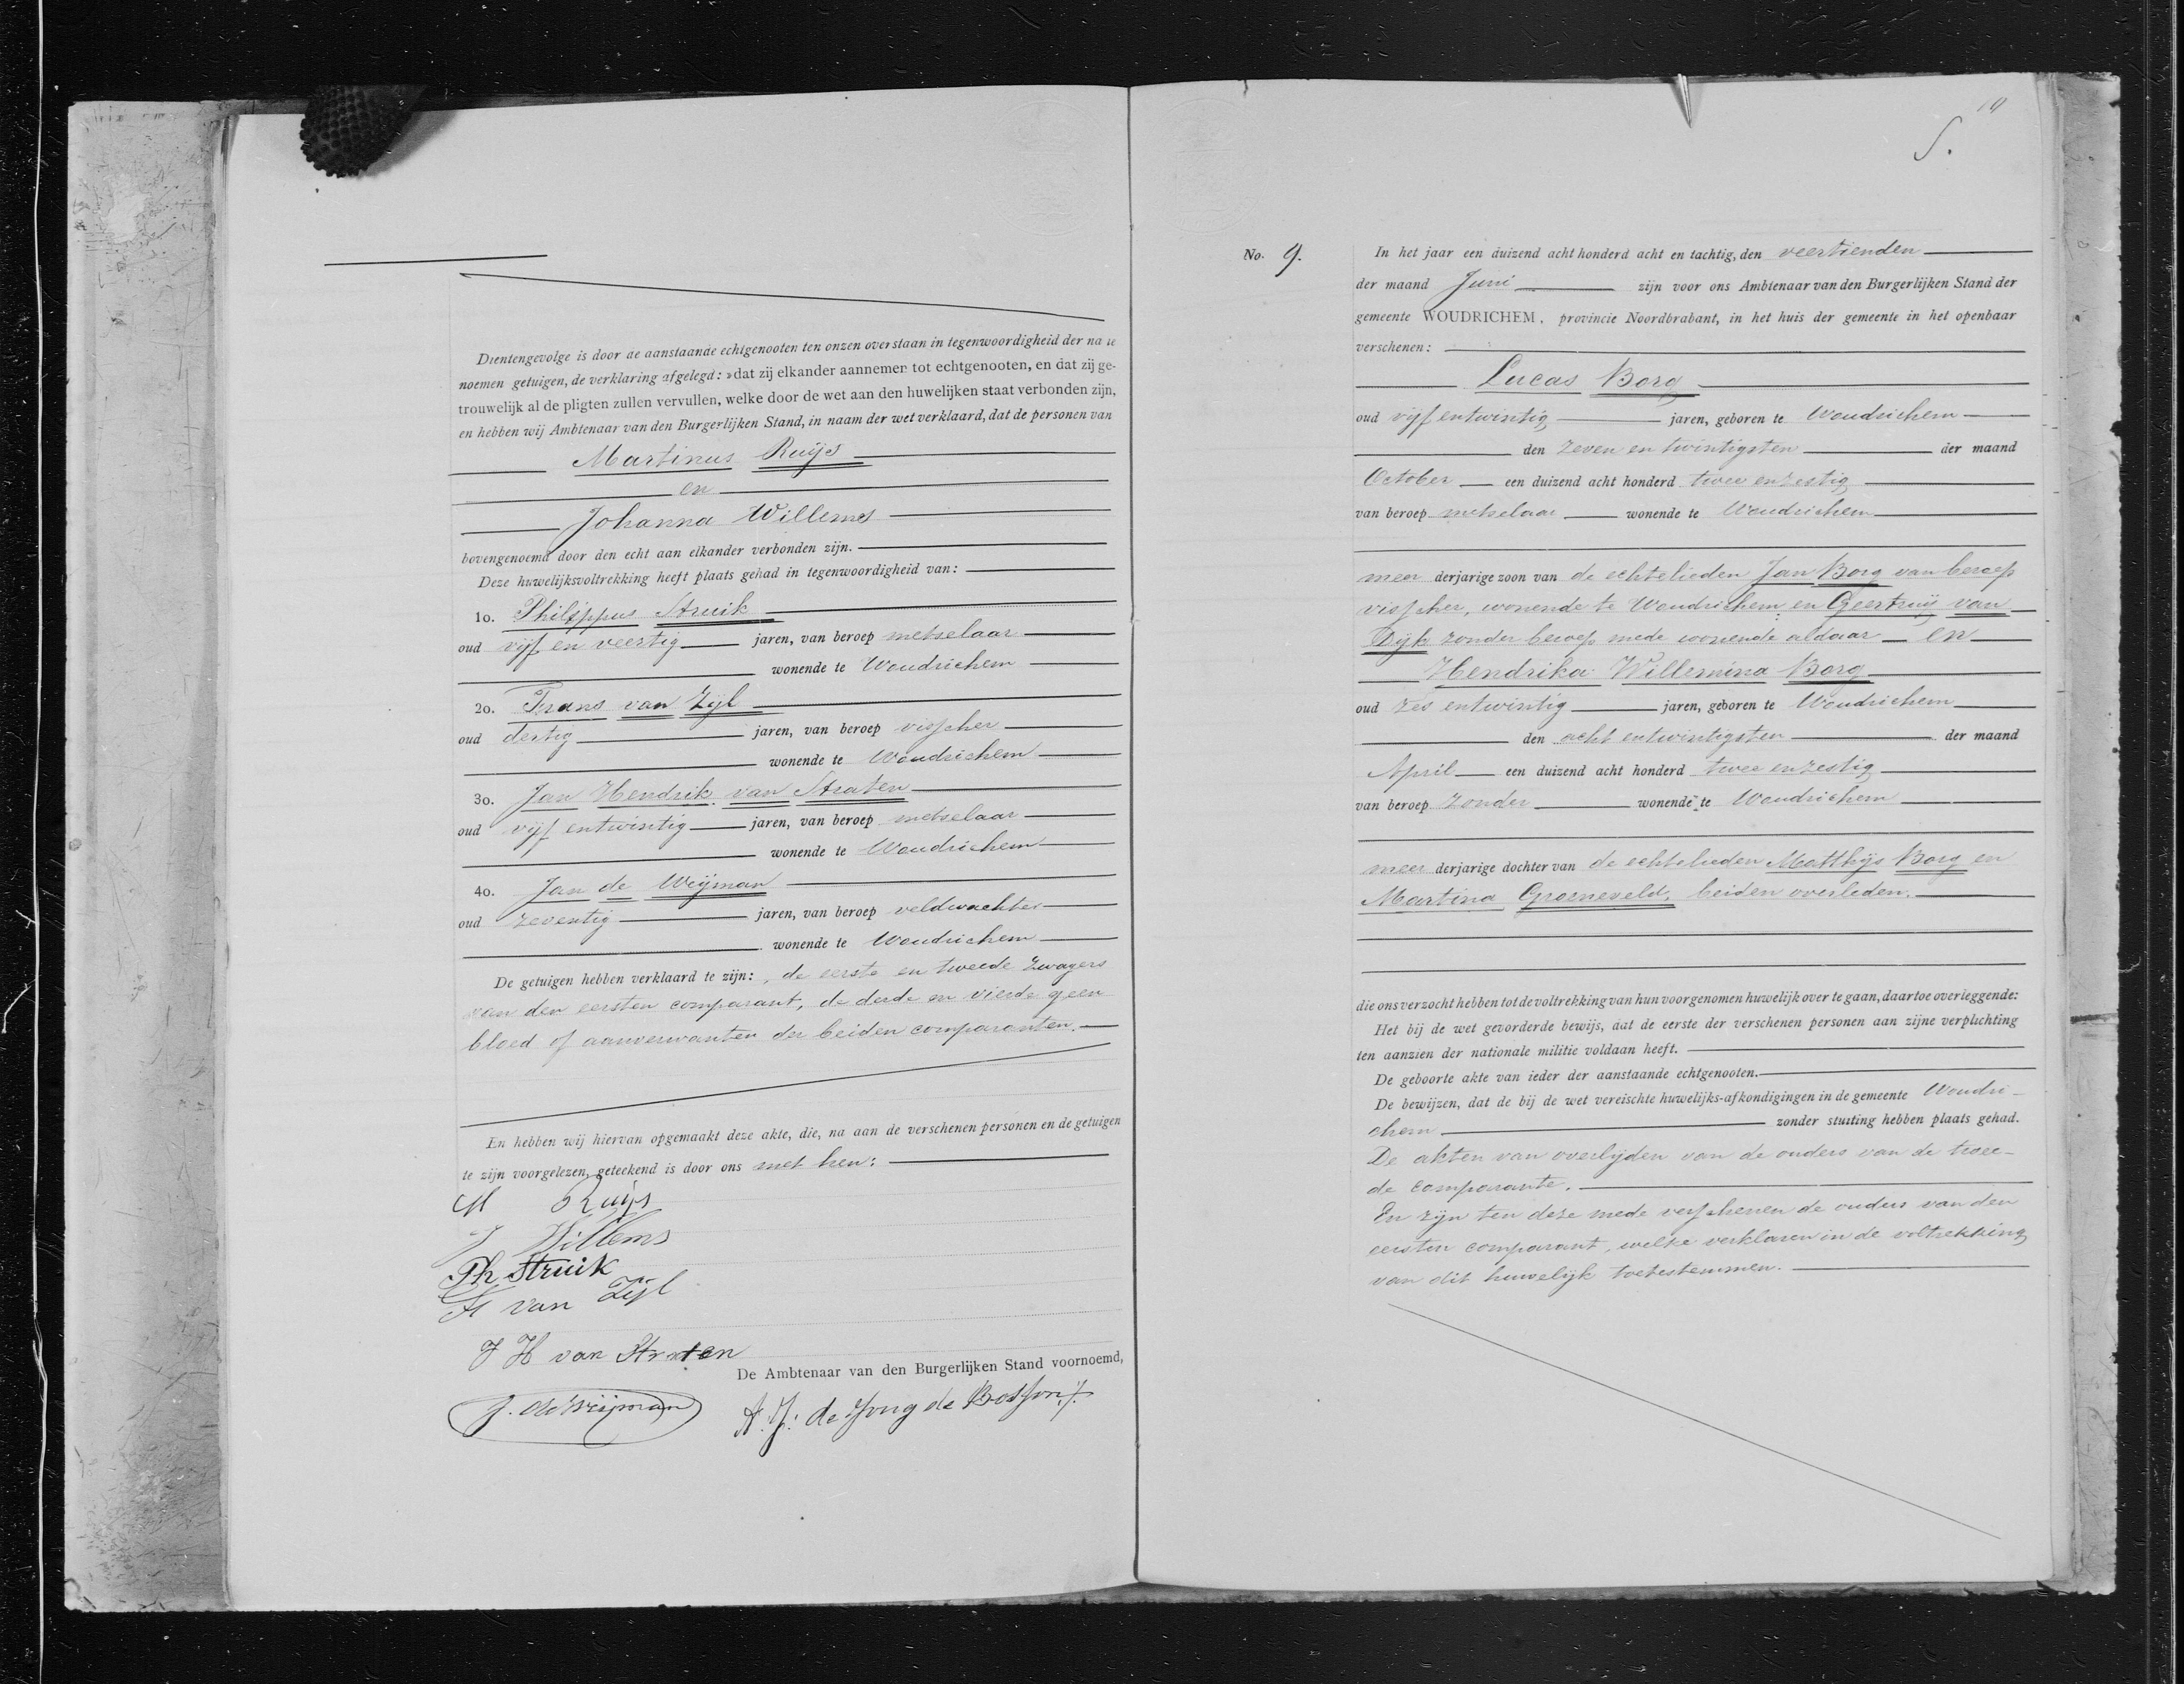 Dientengevolge is door de aanstaande echtgenooten ten onzen overstaan in tegenwoordigheid der na te
noemen getuigen, de verklaring afgelegd: »dat zij elkander aannemen tot echtgenooten, en dat zij ge-
trouwelijk al de pligten zullen vervullen, welke door de wet aan den huwelijken staat verbonden zijn,
en hebben wij Ambtenaar van den Burgerlijken Stand, in naam der wet verklaard, dat de personen van
Martinus Ruijs
en
Johanna Willems
bovengenoemd door den echt aan elkander verbonden zijn.
Deze huwelijksvoltrekking heeft plaats gehad in tegenwoordigheid van:
1o. Philippus Struik
oud vijf en veertig jaren, van beroep metselaar
wonende te Woudrichem
2o. Frans van Zijl
oud dertig jaren, van beroep visscher
wonende te Woudrichem
3o. Jan Hendrik van Straten
oud vijf entwintig jaren, van beroep metselaar
wonende te Woudrichem
4o. Jan de Weijman
oud zeventig jaren, van beroep veldwachter
wonende te Woudrichem
De getuigen hebben verklaard te zijn: de eerste en tweede zwagers
van den eersten comparant, de derde en vierde geen
bloed of aanverwanten der beiden comparanten.
En hebben wij hiervan opgemaakt deze akte, die, na aan de verschenen personen en de getuigen
te zijn voorgelezen, geteekend is door ons met hen:
M Ruijs
J Willems
Ph Struik
F van Zijl
J H van Straten
De Ambtenaar van den Burgerlijken Stand voornoemd,
J. de Weijman
A. J. de Jong de Bosson
10
S.
No. 9.
In het jaar een duizend acht honderd acht en tachtig, den veertienden
der maand Juni zijn voor ons Ambtenaar van den Burgerlijken Stand der
gemeente WOUDRICHEM, provincie Noordbrabant, in het huis der gemeente in het openbaar
verschenen:
Lucas Borg
oud vijf entwintig jaren, geboren te Woudrichem
den zeven en twintigsten der maand
October een duizend acht honderd twee enzestig
van beroep metselaar wonende te Woudrichem
meer derjarige zoon van de echtelieden Jan Borg van beroep
visscher, wonende te Woudrichem en Geertruij van
Dijk zonder beroep mede wonende aldaar en
Hendrika Willemina Borg
oud zes entwintig jaren, geboren te Woudrichem
den acht entwintigsten der maand
April een duizend acht honderd twee enzestig
van beroep zonder wonende te Woudrichem
meer derjarige dochter van de echtelieden Matthijs Borg en
Martina Groeneveld, beiden overleden.
die ons verzocht hebben tot de voltrekking van hun voorgenomen huwelijk over te gaan, daartoe overleggende:
Het bij de wet gevorderde bewijs, dat de eerste der verschenen personen aan zijne verplichting
ten aanzien der nationale militie voldaan heeft.
De geboorte akte van ieder der aanstaande echtgenooten.
De bewijzen, dat de bij de wet vereischte huwelijks-afkondigingen in de gemeente Woudri-
chem zonder stuiting hebben plaats gehad.
De akten van overlijden van de ouders van de twee-
de comparante.
En zijn ten deze mede verschenen de ouders van den
eersten comparant, welke verklaren in de voltrekking
van dit huwelijk toetestemmen.